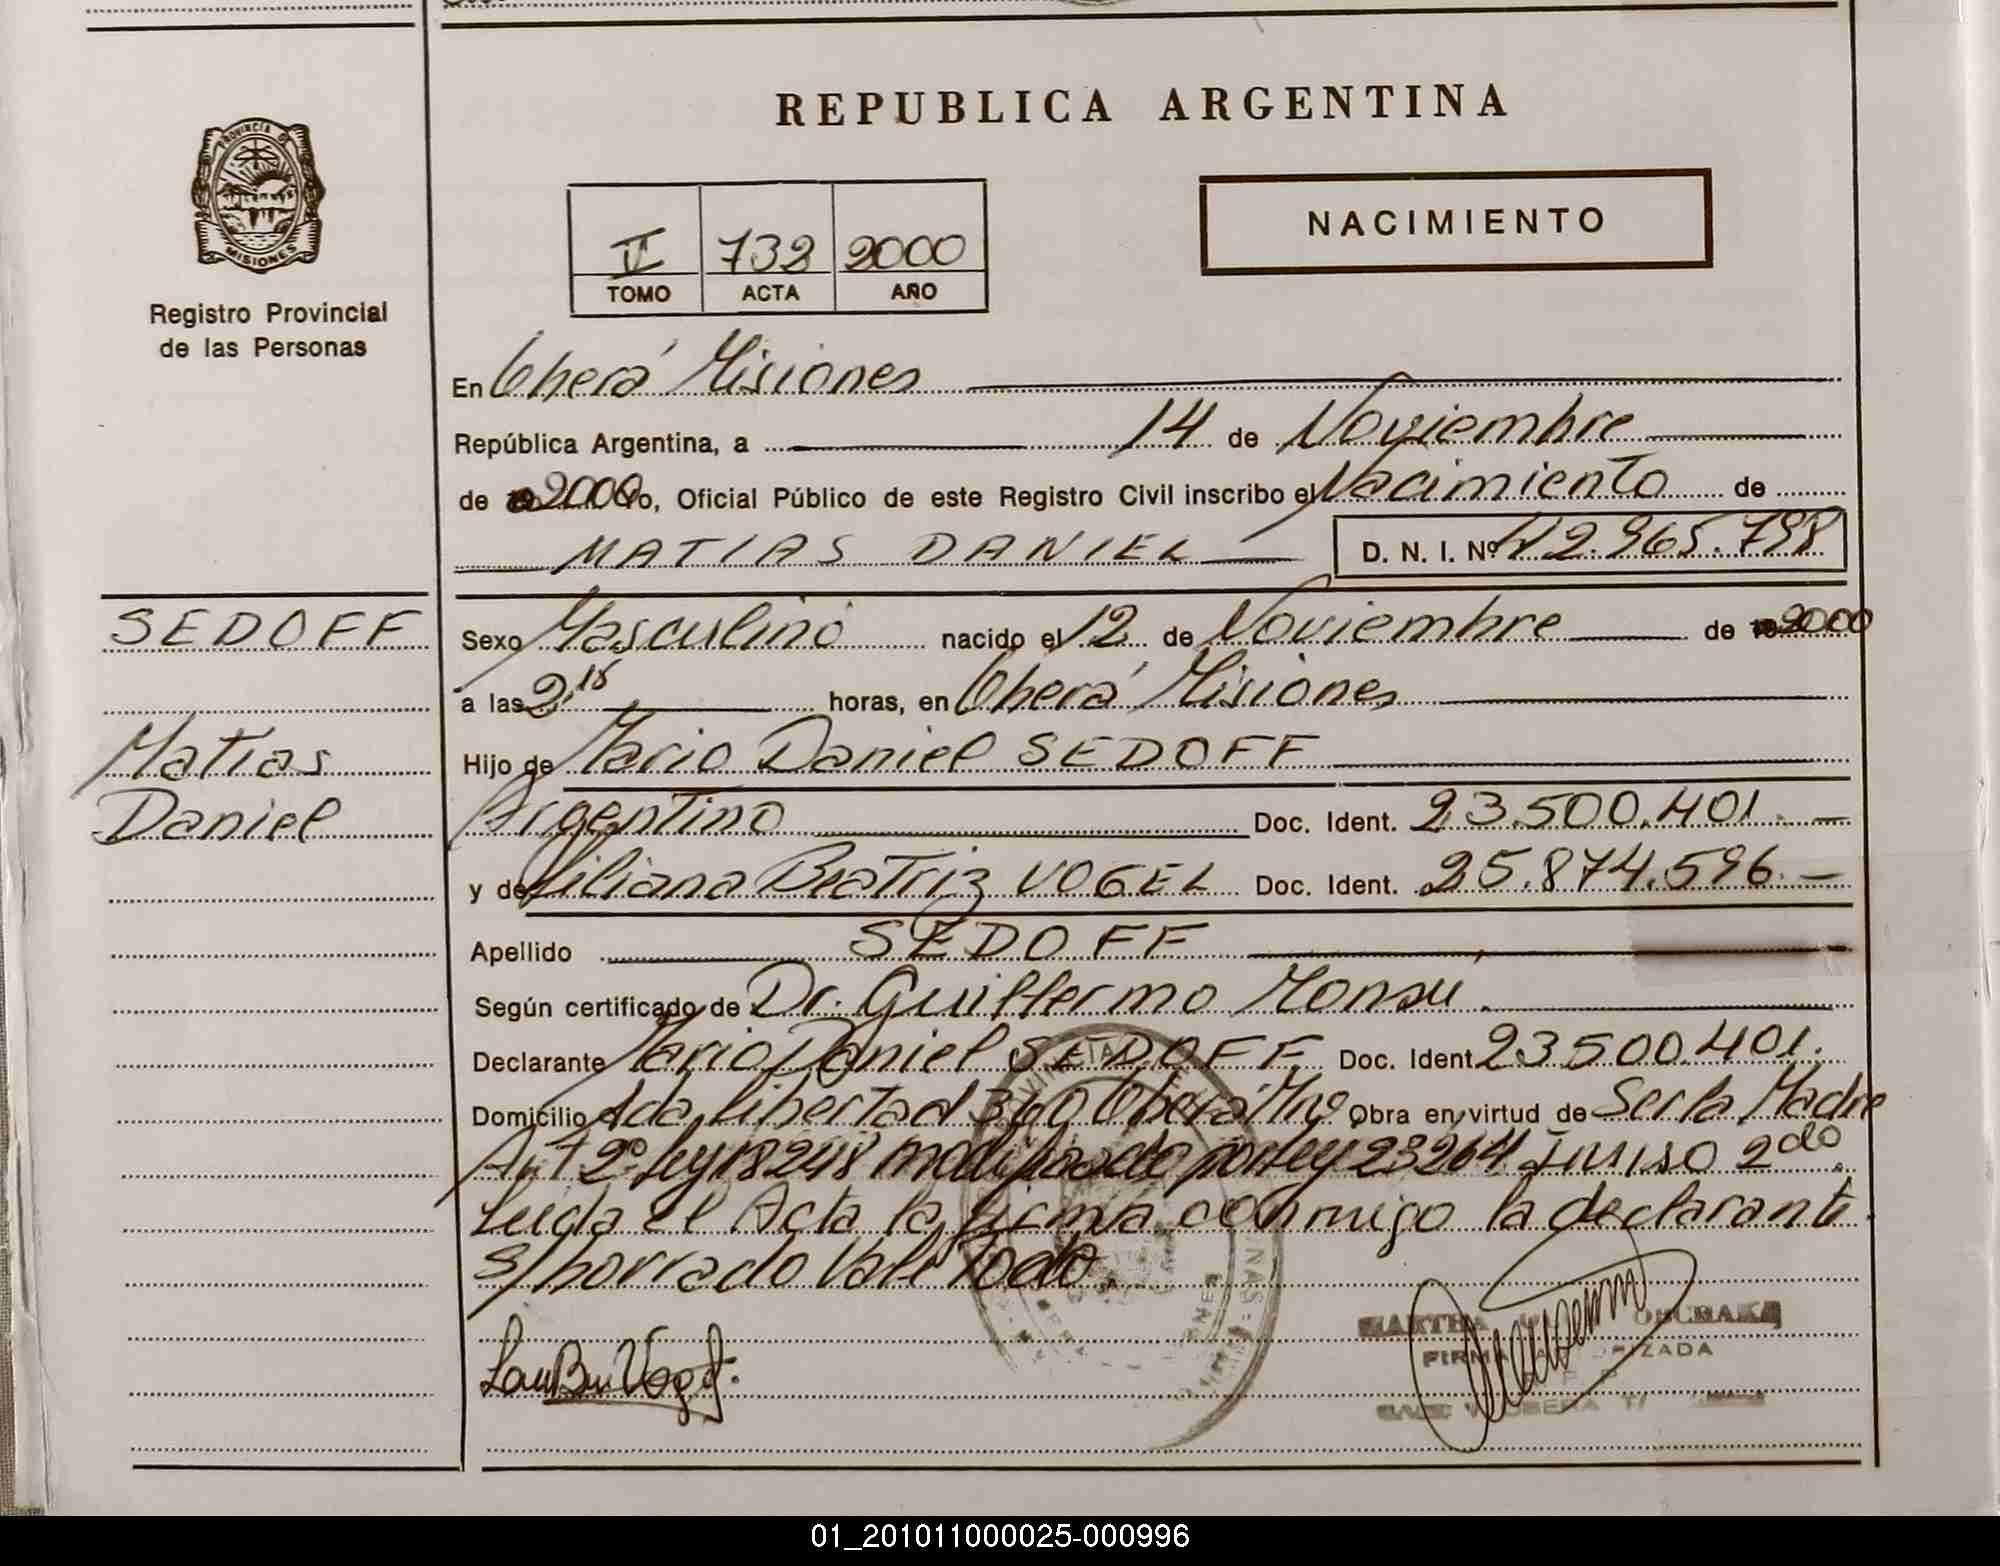 REPUBLICA ARGENTINA
PROVINCIA DE
MISIONES
Registro Provincial
de las Personas
NACIMIENTO
II 732 2000
TOMO ACTA AÑO
En Oberá Misiones
República Argentina, a 14 de Noviembre
de 2000 Yo, Oficial Público de este Registro Civil inscribo el Nacimiento de
MATIAS DANIEL D. N. I. Nº 42.965.798
SEDOFF
Matias
Daniel
Sexo Masculino nacido el 12 de Noviembre de 2000
a las 2,15 horas, en Oberá Misiones
Hijo de Mario Daniel SEDOFF
Argentino Doc. Ident. 23.500.401.-
y de Liliana Beatriz VOGEL Doc. Ident. 25.874.596.-
Apellido SEDOFF
Según certificado de Dr. Guillermo Monsu.
Declarante Mario Daniel SEDOFF Doc. Ident 23500.401.
Domicilio Avda Libertad 360 Oberá Mns Obra en virtud de Ser la Madre
Art 2º Ley 18248 modificado por Ley 23264 Inciso 2do.
Leida el Acta la firma conmigo la declarante.
S/borrado Vale Todo.
MARTHA
FIRMA AUTORIZADA
01_201011000025-000996